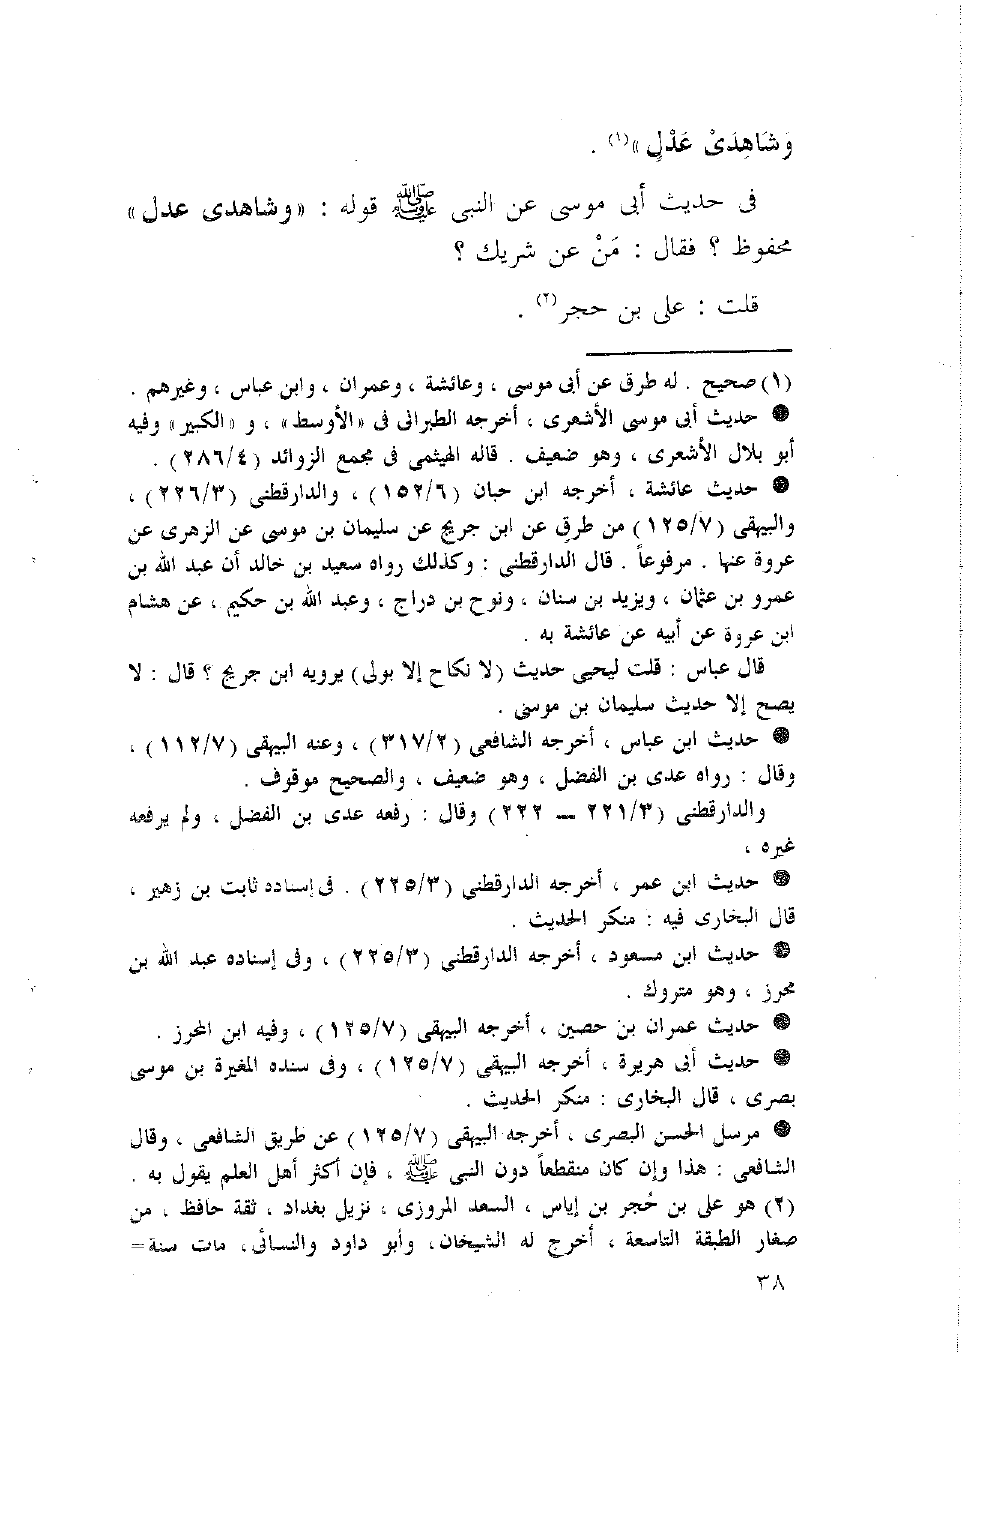 وَشَاهِدَىْ عَدْلٍ »(١) .
فى حديث أبى موسى عن النبى ﷺ قوله : « وشاهدى عدل »
محفوظ ؟ فقال : مَنْ عن شريك ؟
قلت : على بن حجر(٢) .
(١) صحيح . له طرق عن أبى موسى ، وعائشة ، وعمران ، وابن عباس ، وغيرهم .
● حديث أبى موسى الأشعرى ، أخرجه الطبرانى فى «الأوسط» ، و «الكبير» وفيه
أبو بلال الأشعرى ، وهو ضعيف . قاله الهيثمى فى مجمع الزوائد (٢٨٦/٤) .
● حديث عائشة ، أخرجه ابن حبان (١٥٢/٦) ، والدارقطنى (٢٢٦/٣) ،
والبيهقى (١٢٥/٧) من طرقٍ عن ابن جريج عن سليمان بن موسى عن الزهرى عن
عروة عنها . مرفوعاً . قال الدارقطنى : وكذلك رواه سعيد بن خالد أن عبد الله بن
عمرو بن عثمان ، ويزيد بن سنان ، ونوح بن دراج ، وعبد الله بن حكيم ، عن هشام
ابن عروة عن أبيه عن عائشة به .
قال عباس : قلت ليحيى حديث (لا نكاح إلا بولى) يرويه ابن جريج ؟ قال : لا
يصح إلا حديث سليمان بن موسى .
● حديث ابن عباس ، أخرجه الشافعى (٣١٧/٢) ، وعنه البيهقى (١١٢/٧) ،
وقال : رواه عدى بن الفضل ، وهو ضعيف ، والصحيح موقوف .
والدارقطنى (٢٢١/٣ ــ ٢٢٢) وقال : رفعه عدى بن الفضل ، ولم يرفعه
غيره ،
● حديث ابن عمر ، أخرجه الدارقطنى (٢٢٥/٣) . فى إسناده ثابت بن زهير ،
قال البخارى فيه : منكر الحديث .
● حديث ابن مسعود ، أخرجه الدارقطنى (٢٢٥/٣) ، وفى إسناده عبد الله بن
محرز ، وهو متروك .
● حديث عمران بن حصين ، أخرجه البيهقى (١٢٥/٧) ، وفيه ابن المحرز .
● حديث أبى هريرة ، أخرجه البيهقى (١٢٥/٧) ، وفى سنده المغيرة بن موسى
بصرى ، قال البخارى : منكر الحديث .
● مرسل الحسن البصرى ، أخرجه البيهقى (١٢٥/٧) عن طريق الشافعى ، وقال
الشافعى : هذا وإن كان منقطعاً دون النبى ﷺ ، فإن أكثر أهل العلم يقول به .
(٢) هو على بن حُجر بن إياس ، السعد المروزى ، نزيل بغداد ، ثقة حافظ ، من
صغار الطبقة التاسعة ، أخرج له الشيخان، وأبو داود والنسائى، مات سنة=
٣٨